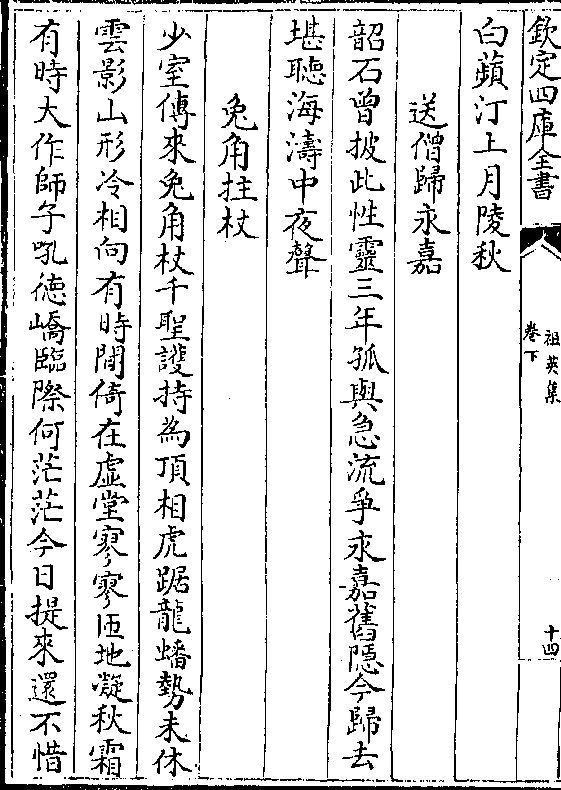 欽定四庫全書
祖英集
卷下
十四
白蘋汀上月陵秋
送僧歸永嘉
韶石曾披此性靈三年孤與急流爭永嘉舊隱今歸去
堪聽海濤中夜聲
兔角拄杖
少室傳來兔角杖千聖護持為頂相虎踞龍蟠勢未休
雲影山形冷相向有時閒倚在虛堂寥寥匝地凝秋霜
有時大作師子吼德嶠臨際何茫茫今日提來還不惜